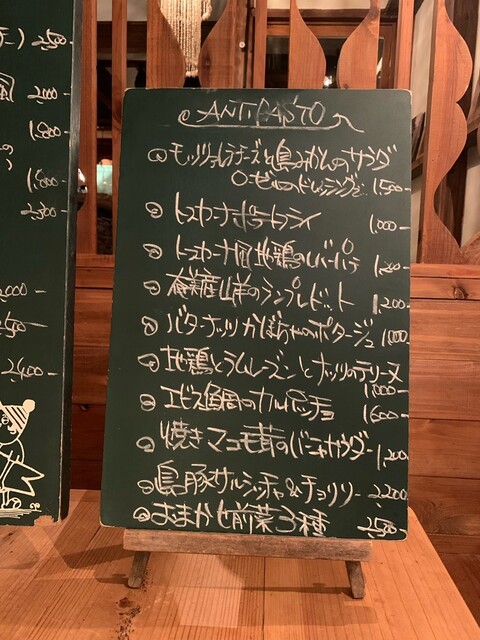 ニ) 2,500-
風 2,000-
の 1,800-
2,000-
2,400-
ANTIPASTO
モッツァレラチーズと島みかんのサラダ
ローゼルのドレッシング 1,500-
トスカーナポテトフライ 1,000-
トスカーナ風地鶏のレバーパテ 1,200-
奄美産山羊のランプレドット 1,200-
バターナッツかぼちゃのポタージュ 1,000
地鶏とラムレーズンとナッツのテリーヌ
1,800-
エビス鯛のカルパッチョ 1,600-
焼きマコモ茸のバーニャカウダー 1,200-
島豚サルシッチャ&チョリソー 2,200
おまかせ前菜3種 2,500-